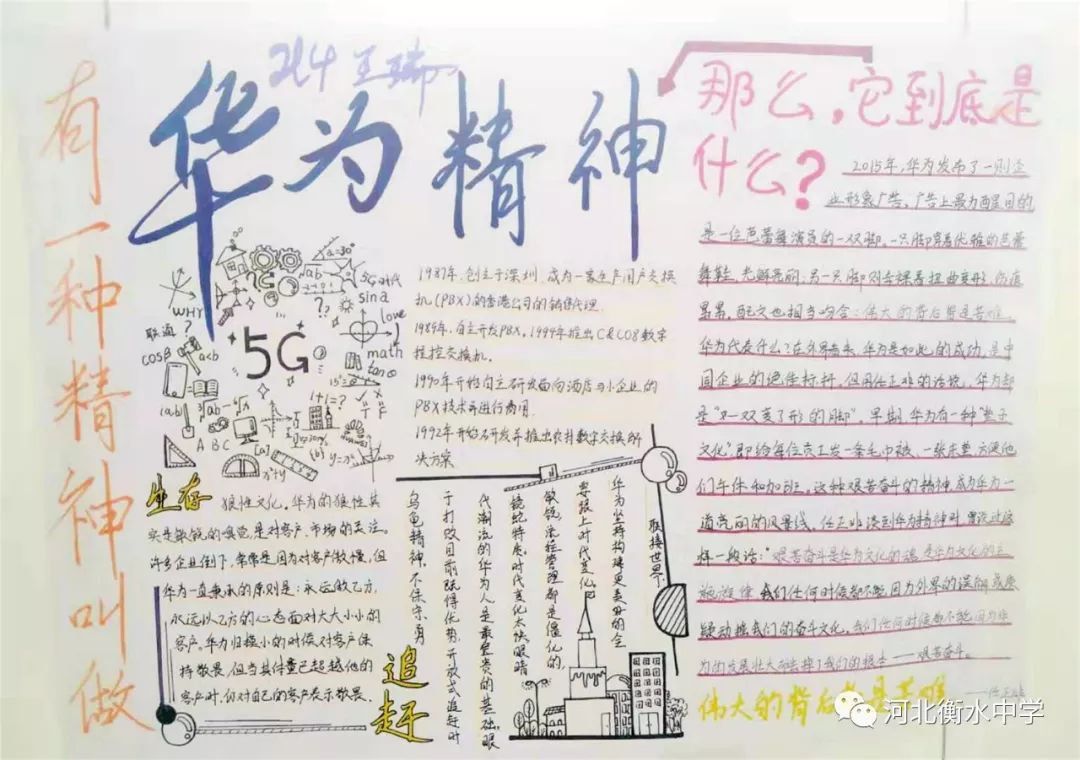 有一种精神叫做
214 王瑞
华为精神
那么,它到底是
什么?
2015年,华为发布了一则企
业形象广告。广告上最为醒目的
是一位芭蕾舞演员的一双脚。一只脚穿着优雅的芭蕾
舞鞋,光鲜亮丽;另一只脚则赤裸着扭曲变形,伤痕
累累,配文也相当吻合:伟大的背后都是苦难。
华为代表什么?在外界看来,华为是如此的成功,是中
国企业的绝佳标杆,但用任正非的话说,华为却
是“又一双变了形的脚”。早期,华为有一种“垫子
文化”,即给每位员工发一条毛巾被、一张床垫,方便他
们午休和加班。这种艰苦奋斗的精神成为华为一
道亮丽的风景线。任正非谈到华为精神时,曾说过这
样一段话:“艰苦奋斗是华为文化的魂,是华为文化的主
旋律,我们任何时候都不能因为外界的误解或质
疑动摇我们的奋斗文化,我们任何时候都不能因为华
为的发展壮大而丢掉了我们的根本——艰苦奋斗。
伟大的背后都是苦难
1987年,创立于深圳,成为一家生产用户交换
机(PBX)的香港公司的销售代理.
1989年,自主开发PBX,1994年推出C&C08数字
程控交换机。
1990年开始自主研发面向酒店与小企业的
PBX技术并进行商用.
1992年开始研发并推出农村数字交换解
决方案.
5G
5G时代
sin a
love
math
tan a
a=30°
√ab
WHY
联通?
cosβ
a<b
ABC
1+1=?
x+y
生存
狼性文化。华为的狼性其
实是敏锐的嗅觉,是对客户、市场的关注。
许多企业倒下,常常是因为对客户傲慢,但
华为一直秉承的原则是:永远做乙方,
永远以乙方的心态面对大大小小的
客户。华为归模小的时候对客户保
持敬畏,但当其体量已超越他的
客户时,仍对自己的客户表示敬畏.
追赶
联接世界
华为坚持构建更美好的全
要跟上时代变化,
敏锐,流程管理都是僵化的,
镜蛇特质。时代变化太快,眼睛
代潮流的华为人是最宝贵的基础。眼
于打破目前既得优势,开放式追赶时
乌龟精神,不保守,勇
河北衡水中学